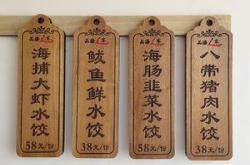 海捕大虾水饺
58元/份
鲅鱼鲜水饺
海肠韭菜水饺
58元/份
八带猪肉水饺
38元/份